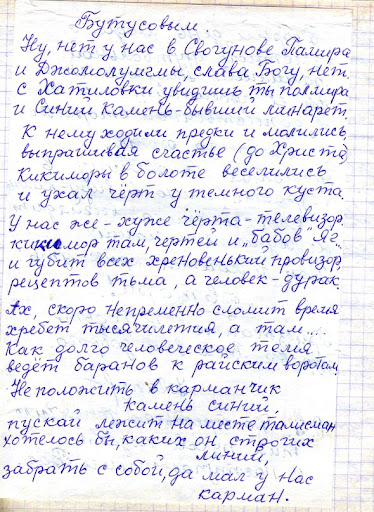 Бутусовым.
Ну, нет у нас в Свогунове Памира
и Джомолунгмы, слава Богу, нет.
с Хатиловки увидишь ты полмира
и Синий Камень-бывший минарет.
К нему ходили предки и молились,
выпрашивая счастье (до Христа)
Кикиморы в болоте веселились
и ухал чёрт у темного куста.
У нас же-хуже чёрта-телевизор,
кикимор там, чертей и „бабов Яг"..
и губит всех хреновенький провизор,
рецептов тьма, а человек-дурак.
Ах, скоро непременно сломит время
хребет тысячилетия, а там....
Как долго человеческое темя
ведёт баранов к райским воротам.
Не положить в карманчик
камень синий,
пускай лежит на месте талисман
хотелось бы, каких он строгих
линий,
забрать с собой, да мал у нас
карман.